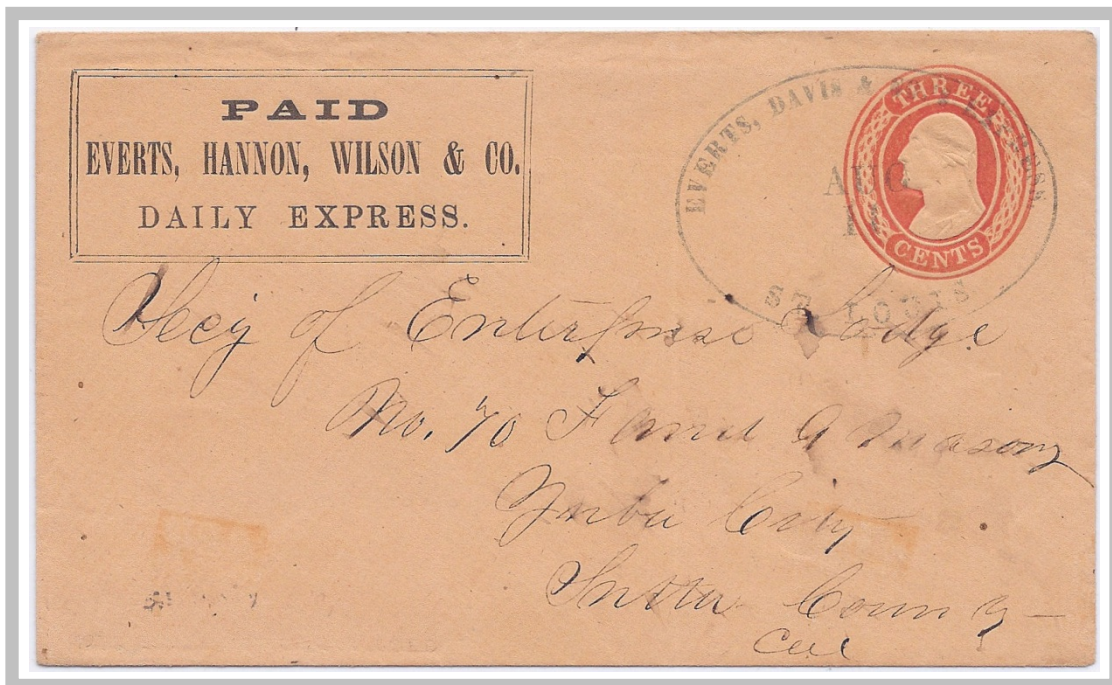 PAID
EVERTS, HANNON, WILSON & CO.
DAILY EXPRESS.
EVERTS, DAVIS & EXPRESS
AUG
ST. LOUIS
THREE
CENTS
Secy of Enterprise Lodge
No. 70 F and A Masons
Yuba City
Sutter County
Cal